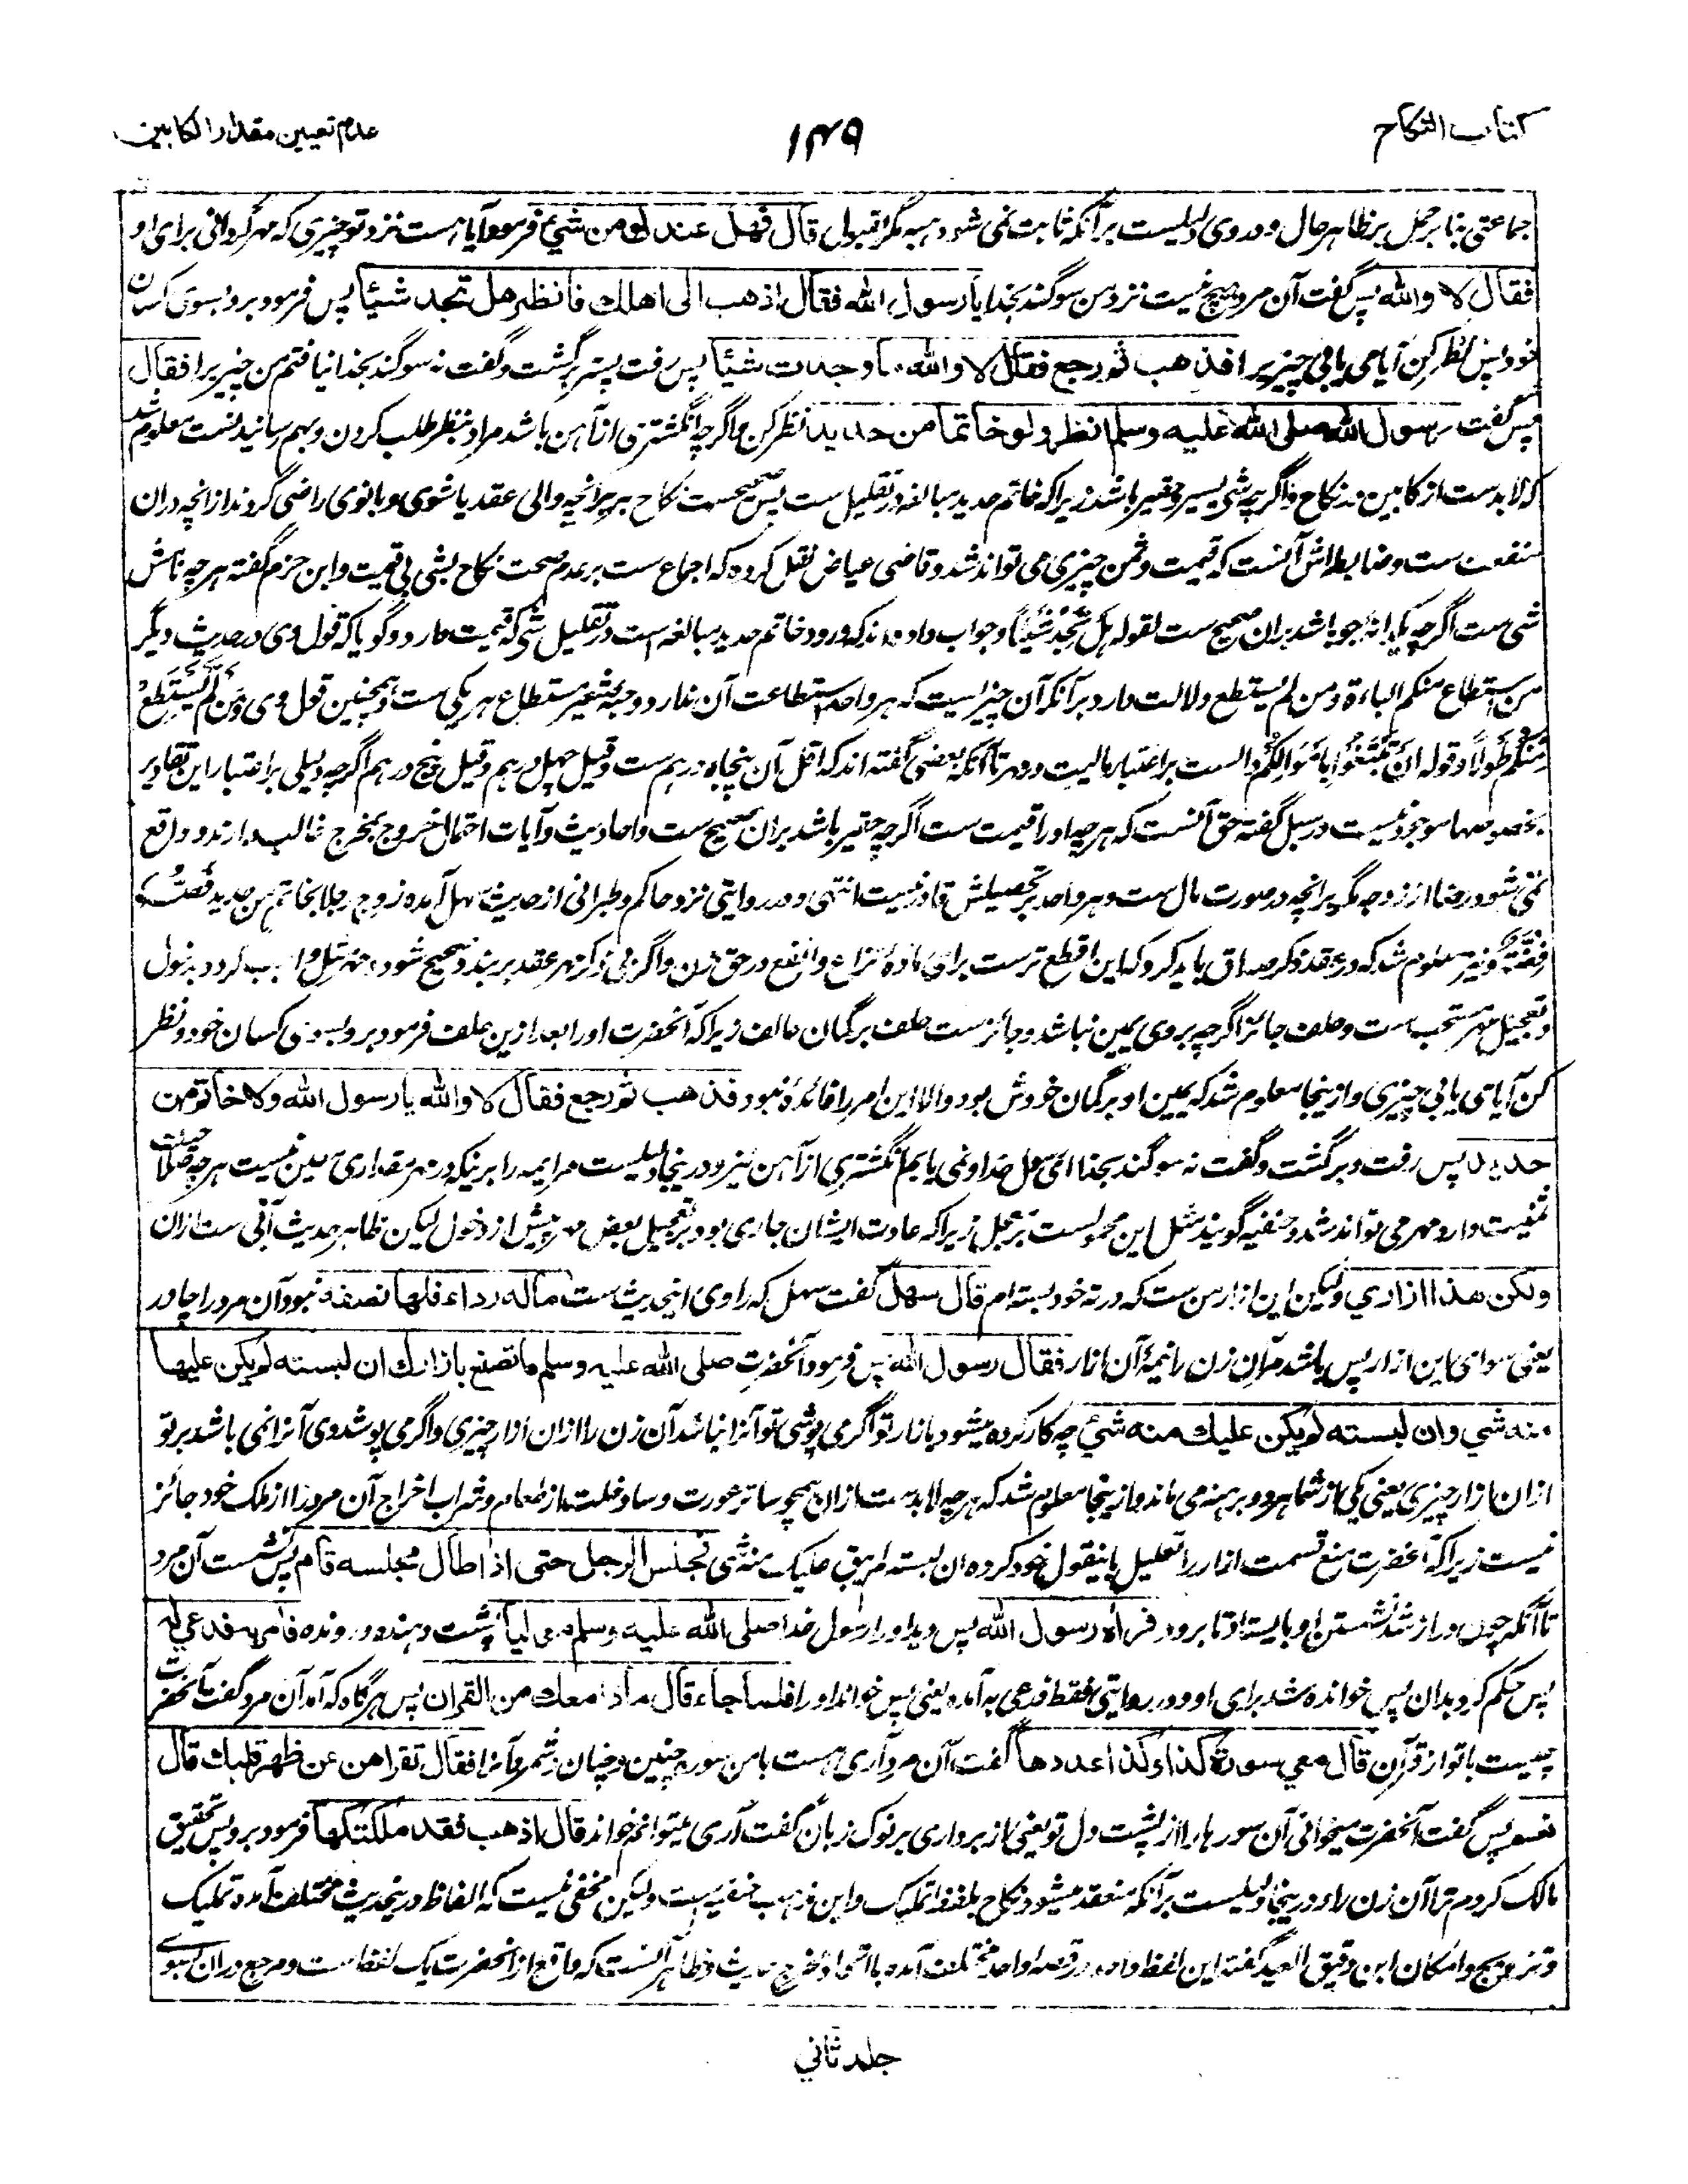 کتاب النکاح
۱۴۹
عدم تعیین مقدار الکابین
جماعتی بنا بر حمل بر ظاهر حال و دروی دلیلیست بر آنکه ثابت نمی شود هبه مگر بقبول قال فهل عندك من شيء فرمود آیا هست نزد تو چیزی که مهر گردانی برای او
فقال لا والله پس گفت آن مرد هیچ نیست نزد من سوگند بخدا یا رسول الله فقال اذهب الى اهلك فانظر هل تجد شيئا پس فرمود برو بسوی کسان
خود پس نظر کن آیا می یابی چیزی را فذهب ثم رجع فقال لا والله ما وجدت شيئا پس رفت پستر برگشت و گفت نه سوگند بخدا نیافتم من چیزی را فقال
پس گفت رسول الله صلى الله عليه وسلم انظر ولو خاتما من حديد نظر کن و اگرچه انگشتری از آهن باشد مراد بنظر طلب کردن و بهم رسانیدنست معلوم شد
که لابدست از کابین در نکاح و اگرچه شی یسیر و حقیر باشد زیرا که خاتم حدید مبالغه در تقلیل ست پس صحیحست نکاح بر هرانچه والی عقد یا شوی و بانوی راضی گردند از انچه دران
منفعت ست و ضابطه اش آنست که قیمت و ثمن چیزی می تواند شد و قاضی عیاض نقل کرده که اجماع ست بر عدم صحت نکاح بشی بی قیمت و ابن حزم گفته هرچه نامش
شی ست اگرچه یکدانۀ جو باشد بران صحیح ست لقوله هَلْ تَجِدُ شَيْئًا و جواب داده اند که ورود خاتم حدید مبالغه است در تقلیل شی که قیمت دارد و گویا که قول وی در حدیث دیگر
من استطاع منكم الباءة و من لم يستطع دلالت دارد بر آنکه آن چیزیست که هر واحد استطاعت آن ندارد و حبۀ شعیر مستطاع هر یکی ست و همچنین قول وی وَمَنْ لَمْ يَسْتَطِعْ
مِنْكُمْ طَوْلًا و قوله اَنْ تَبْتَغُوْا بِاَمْوَالِكُمْ دالست بر اعتبار مالیت در مهر تا آنکه بعضی گفته اند که اقل آن پنجاه درهم ست و قیل چهل درهم و قیل پنج درهم اگرچه دلیلی بر اعتبار این تقادیر
بخصوصها موجود نیست در سبل گفته حق آنست که هرچه او را قیمت ست اگرچه حقیر باشد بران صحیح ست و احادیث و آیات احتمال خروج بمخرج غالب دارند و واقع
نمی شود رضا از زوجه مگر بر انچه در صورت مال ست و هر واحد بر تحصیلش قادر نیست انتهی و در روایتی نزد حاکم و طبرانی از حدیث سهل آمده زوج رجلا بخاتم من حدید فَصُّهُ
فِضَّةٌ و نیز معلوم شد که در عقد ذکر صداق باید کرد که این اقطع ترست برای مادۀ نزاع و انفع در حق زن و اگر بی ذکر مهر عقد بر بندد صحیح شود و مهر مثل واجب گردد بدخول
و تعجیل مهر مستحب ست و حلف جائز اگرچه بروی یمین نباشد و جائزست حلف بر گمان حالف زیرا که آنحضرت او را بعد ازین حلف فرمود برو بسوی کسان خود و نظر
کن آیا می یابی چیزی و ازینجا معلوم شد که یمین او بر گمان خودش بود والا این امر را فائده نبود فذهب ثم رجع فقال لا والله يا رسول الله ولا خاتم من
حديد پس رفت و برگشت و گفت نه سوگند بخدا ای رسول خدا و نمی یابم انگشتری از آهن نیز و درینجا دلیلیست مر ایمه را برینکه در مهر مقداری معین نیست هرچه صلاحیت
ثمنیت دارد مهر می تواند شد و حنفیه گویند مثل این محمولست بر معجل زیرا که عادت ایشان جاری بود بر تعجیل بعض مهر پیش از دخول لیکن ظاهر حدیث آبی ست ازان
ولكن هذا ازاري ولیکن این ازار من ست که در ته خود بسته ام قال سهل گفت سهل که راوی اینحدیث ست ماله رداء فلها نصفه نبود آن مرد را چادر
یعنی سوای این ازار پس باشد مر آن زن را نیمۀ آن ازار فقال رسول الله پس فرمود آنحضرت صلى الله عليه وسلم ما تصنع بازارك ان لبسته لم يكن عليها
منه شيء وان لبسته لم يكن عليك منه شيء چه کار کرده میشود بازار تو اگر می پوشی تو آنرا نباشد آن زن را ازان ازار چیزی و اگر می پوشد وی آنرا نمی باشد بر تو
ازان ازار چیزی یعنی یکی از شما هر دو برهنه می ماند و ازینجا معلوم شد که هرچه لابدست ازان همچو ساتر عورت و ساد خلت از طعام و شراب اخراج آن مرد را از ملک خود جائز
نیست زیرا که آنحضرت منع قسمت ازار را تعلیل باینقول خود کرده ان لبسته لم یکن علیک منه شی فجلس الرجل حتى اذا طال مجلسه قام پس نشست آن مرد
تا آنکه چون دراز شد نشستن او بایستاد تا برود فراه رسول الله پس دید او را رسول خدا صلى الله عليه وسلم موليا پشت دهنده و رونده فامر به فدعي له
پس حکم کرد بدان پس خوانده شد برای او و در روایتی فقط فدعی به آمده یعنی پس خواند او را فلما جاء قال ماذا معك من القران پس هرگاه که آمد آن مرد گفت آنحضرت
چیست با تو از قرآن قال معي سورة كذا وكذا عددها گفت آن مرد آری هست با من سوره چنین و چنان بشمرد آنرا فقال تقرأهن عن ظهر قلبك قال
نعم پس گفت آنحضرت میخوانی آن سوره ها را از پشت دل تو یعنی از برداری بر نوک زبان گفت آری میتوانم خواند قال اذهب فقد ملكتكها فرمود برو پس تحقیق
مالک کردم ترا آن زن را و درینجا دلیلیست بر آنکه منعقد میشود نکاح بلفظ تملیک و این مذهب حنفیه است ولیکن مخفی نیست که الفاظ درینحدیث مختلف آمده تملیک
و تزویج و امکان ابن دقیق العید گفته این لفظ واحد در قصه واحد مختلف آمده با اتحاد مخرج حدیث و ظاهر آنست که واقع از آنحضرت یک لفظ است و مرجع دران بسوی
جلد ثاني